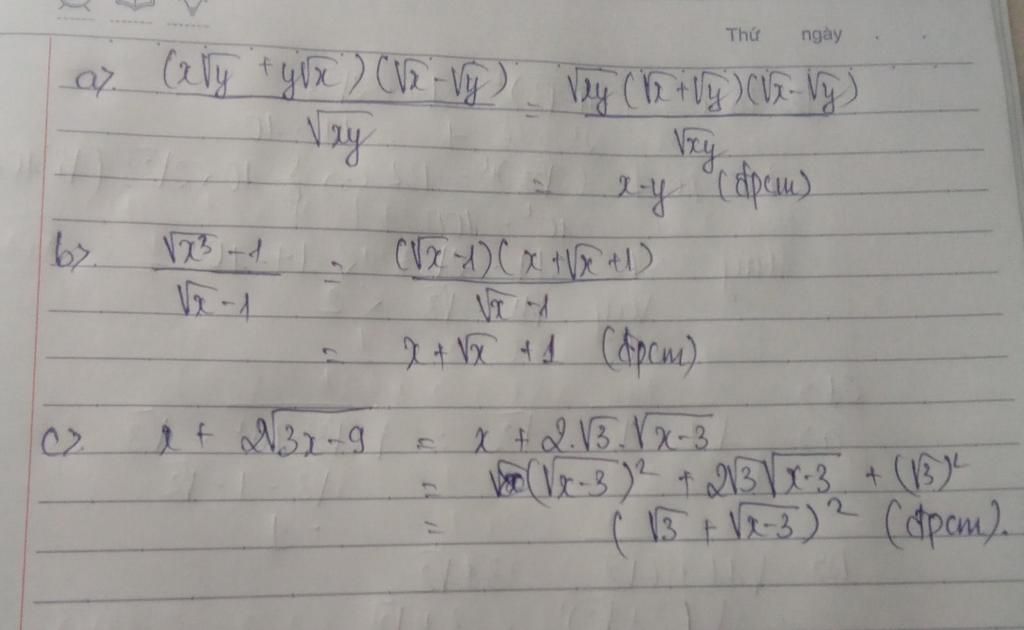 Thứ ngày . .
a>. (x√y + y√x)(√x - √y) / √xy = √xy(√x + √y)(√x - √y) / √xy
= x-y (đpcm)
b>. √x³ - 1 / √x - 1 = (√x - 1)(x + √x + 1) / √x - 1
= x + √x + 1 (đpcm)
c>. x + 2√3x-9 = x + 2.√3.√x-3
= (√x-3)² + 2√3√x-3 + (√3)²
= (√3 + √x-3)² (đpcm).